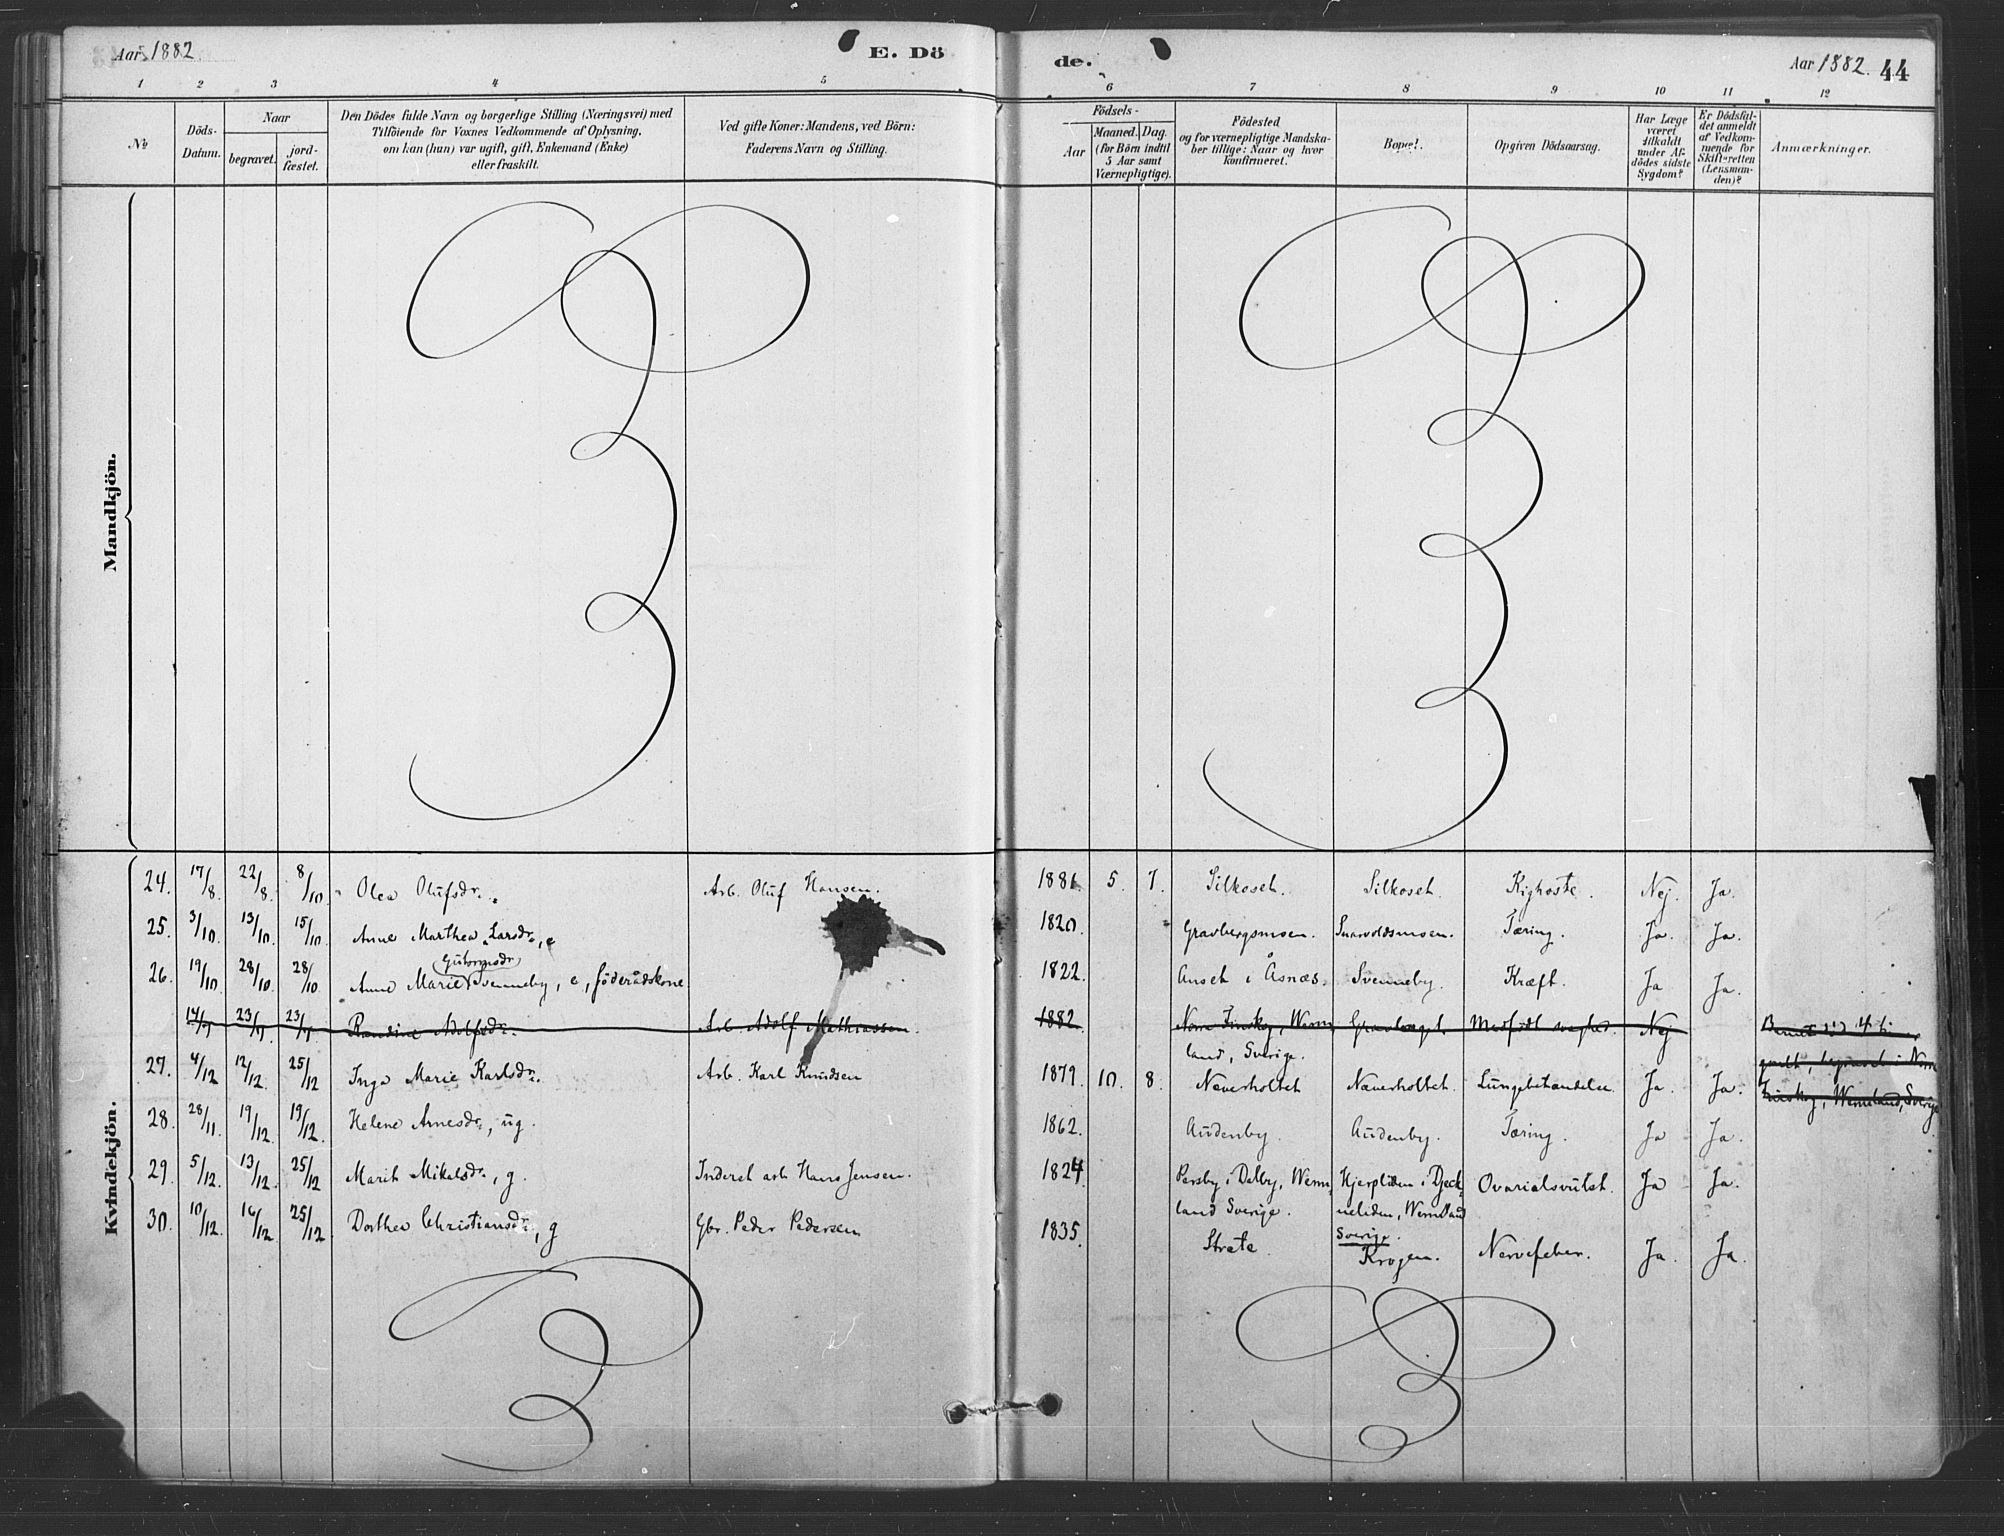 Aar 1882
E. Dö
de.
Aar 1882. 44
1 2 3 4 5 6 7 8 9 10 11 12
No
Döds-
Datum.
Naar
begravet.
jord-
fæstet.
Den Dödes fulde Navn og borgerlige Stilling (Næringsvei) med
Tilföiende for Voxnes Vedkommende af Oplysning,
om han (hun) var ugift, gift, Enkemand (Enke)
eller fraskilt.
Ved gifte Koner: Mandens, ved Börn:
Faderens Navn og Stilling.
Födsels-
Aar
Maaned. Dag.
(for Börn indtil
5 Aar samt
Værnepligtige).
Födested
og for værnepligtige Mandska-
ber tillige: Naar og hvor
konfirmeret.
Bopæl.
Opgiven Dödsaarsag.
Har Læge
været
tilkaldt
under Af-
dödes sidste
Sygdom?
Er Dödsfal-
det anmeldt
af Vedkom-
mende for
Skifteretten
(Lensman-
den)?
Anmærkninger.
Mandkjön.
Kvindekjön.
24. 17/8. 22/8. 8/10. Olea Olufsdr. Arb. Oluf Hansen. 1881 5. 7. Silkoset. Silkoset. Kighoste. Nej. Ja.
25. 3/10. 13/10. 15/10. Anne Marthea Larsdr., e 1820. Gravbergsmoen. Snarvoldsmoen. Tæring. Ja. Ja.
Gutormsdr.
26. 19/10. 28/10. 28/10. Anne Marie Svenneby, e, föderådskone 1822. Anset i Åsnæs. Svenneby. Kræft. Ja Ja.
23/9. 23/9. Randine Adolfsdr. Arb. Adolf Mathiassen. 1882. Norre Finskog, Werm Medfödt svaghed. Nej
land, Sverige.
27. 4/12 12/12. 25/12 Inga Marie Karlsdr. Arb. Karl Knudsen 1879. 10. 8. Næverholtet Næverholtet. Lungebetændelse Ja. Ja.
begravet i Norre
Finskog, Wermland, Sverige
28. 28/11. 19/12. 19/12. Helene Arnesdr., ug. 1862. Audenby. Audenby. Tæring. Ja Ja.
29 5/12. 13/12. 25/12 Marit Mikelsdr., g. Inderst arb. Hans Jensen. 1824. Persby i Dalby, Werm Hjerpliden i Djeck Ovarialsvulst. Ja Ja.
land Sverige. neliden, Wermland
Sverige.
30. 10/12. 16/12. 25/12 Dorthea Christiansdr., g Gbr. Peder Pedersen 1835. Stræte. Krogen. Nervefeber. Ja. Ja.